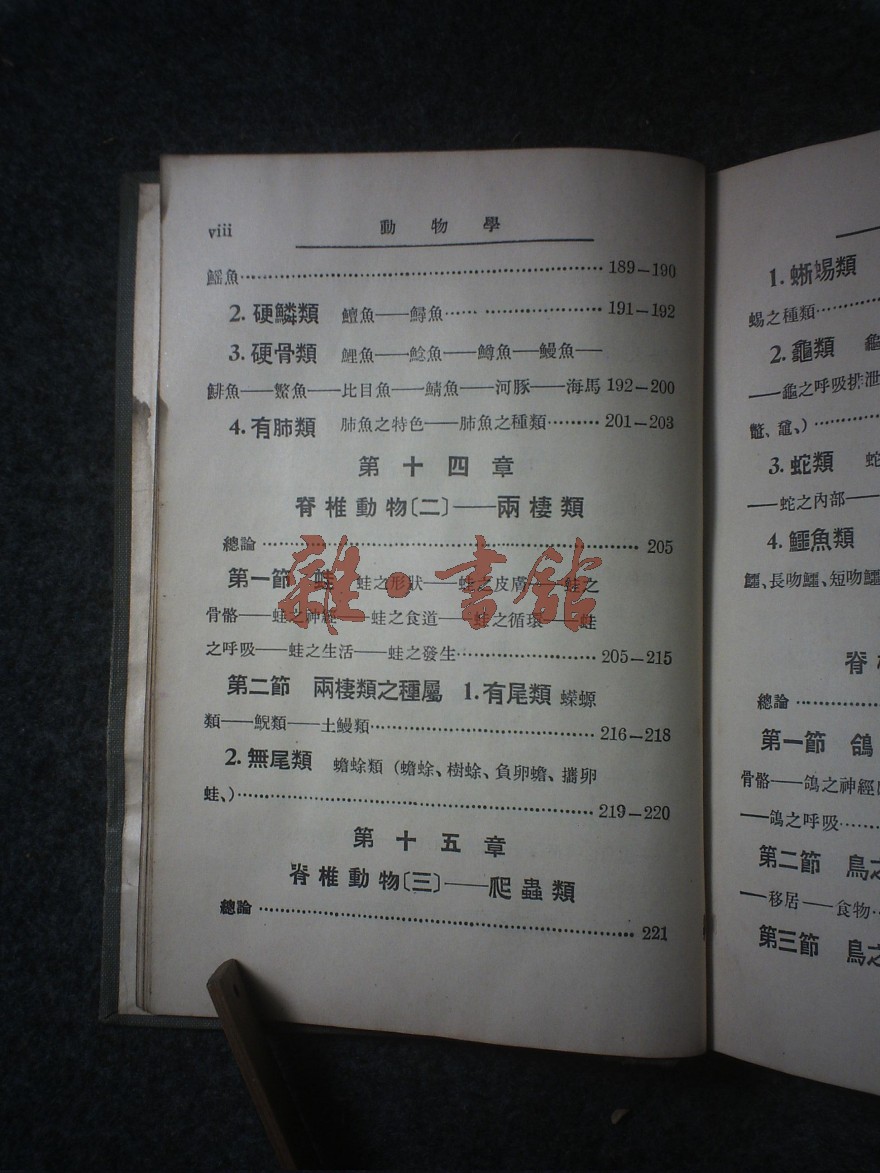 viii 動物學
鰩魚 189—190
2. 硬鱗類 鱣魚——鱘魚 191—192
3. 硬骨類 鯉魚——鯰魚——鱒魚——鰻魚——
鯡魚——鱉魚——比目魚——鯖魚——河豚——海馬 192—200
4. 有肺類 肺魚之特色——肺魚之種類 201—203
第十四章
脊椎動物〔二〕——兩棲類
總論 205
第一節 蛙 蛙之形狀——蛙之皮膚——蛙之
骨骼——蛙之神經——蛙之食道——蛙之循環——蛙
之呼吸——蛙之生活——蛙之發生 205—215
第二節 兩棲類之種屬 1. 有尾類 蠑螈
類——鯢類——土鰻類 216—218
2. 無尾類 蟾蜍類（蟾蜍、樹蜍、負卵蟾、攜卵
蛙、） 219—220
第十五章
脊椎動物〔三〕——爬蟲類
總論 221
雜·書館
1. 蜥蜴類
蜴之種類
2. 龜類
——龜之呼吸排泄
鼈、黿、）
3. 蛇類
——蛇之內部——
4. 鱷魚類
鱷、長吻鱷、短吻鱷
脊
總論
第一節 鴿
骨骼——鴿之神經
——鴿之呼吸
第二節 鳥之
——移居——食物
第三節 鳥之